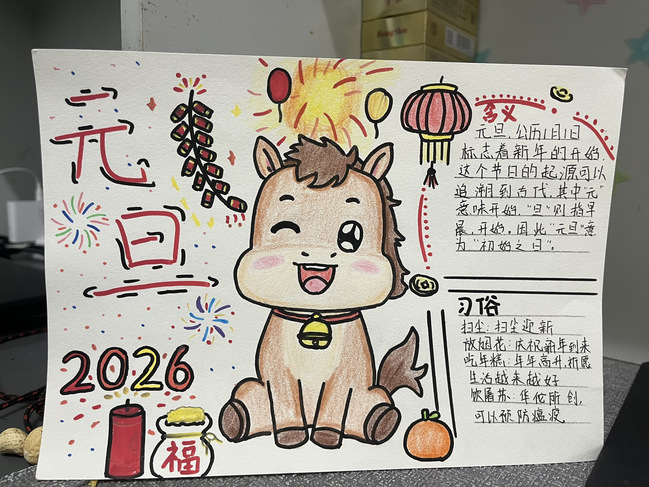 元旦
2026
福
含义
元旦,公历1月1日
标志着新年的开始,
这个节日的起源可以
追溯到古代,其中"元"
意味开始,"旦"则指早
晨,开始。因此"元旦"意
为"初始之日"。
习俗
扫尘:扫尘迎新
放烟花:庆祝新年到来
吃年糕:年年高升,祈愿
生活越来越好
饮屠苏:华佗所创,
可以预防瘟疫